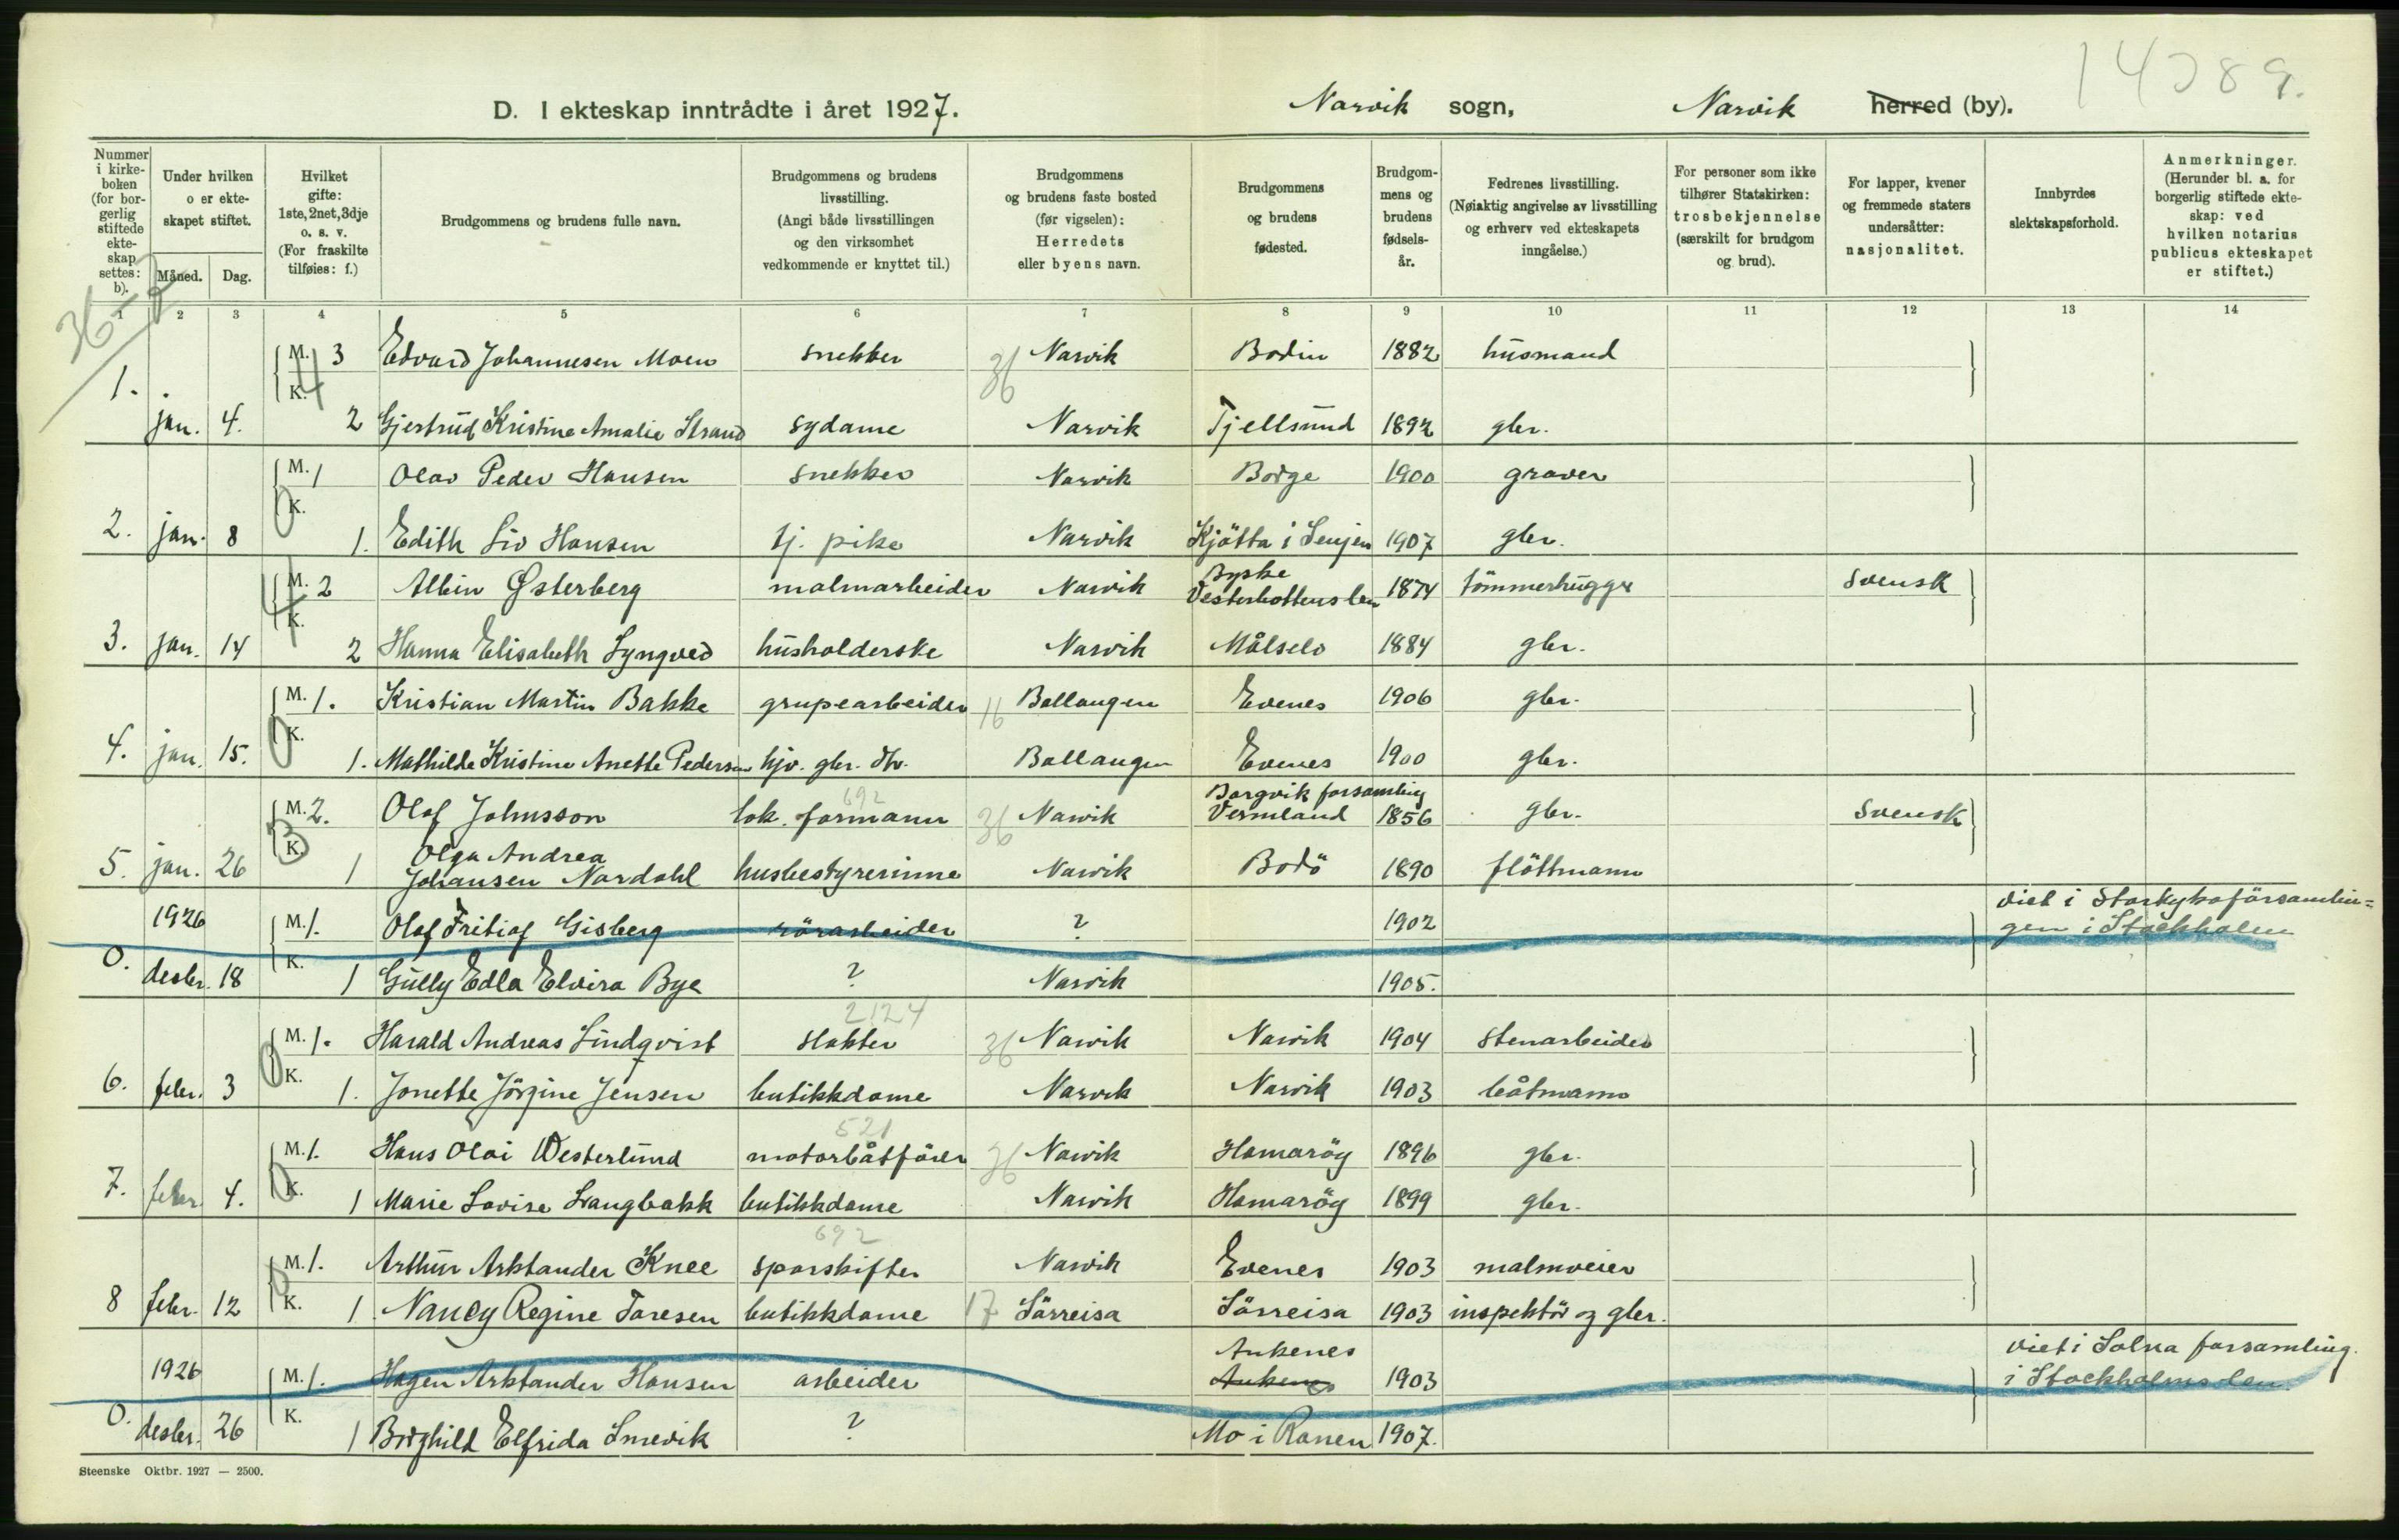 14389.
D. I ekteskap inntrådte i året 1927. Narvik sogn, Narvik herred (by).
Nummer i kirke-boken (for bor-gerlig stiftede ekte-skap settes: b).
Under hvilken o er ekte-skapet stiftet.
Måned. Dag.
Hvilket gifte: 1ste, 2net, 3dje o. s. v. (For fraskilte tilføies: f.)
Brudgommens og brudens fulle navn.
Brudgommens og brudens livsstilling. (Angi både livsstillingen og den virksomhet vedkommende er knyttet til.)
Brudgommens og brudens faste bosted (før vigselen): Herredets eller byens navn.
Brudgommens og brudens fødested.
Brudgom-mens og brudens fødsels-år.
Fedrenes livsstilling. (Nøiaktig angivelse av livsstilling og erhverv ved ekteskapets inngåelse.)
For personer som ikke tilhører Statskirken: trosbekjennelse (særskilt for brudgom og brud).
For lapper, kvener og fremmede staters undersåtter: nasjonalitet.
Innbyrdes slektskapsforhold.
Anmerkninger. (Herunder bl. a. for borgerlig stiftede ekte-skap: ved hvilken notarius publicus ekteskapet er stiftet.)
1 2 3 4 5 6 7 8 9 10 11 12 13 14
36-2
M. 3 Edvard Johannesen Moen snekker 36 Narvik Bodin 1882 husmand
1. jan. 4. K. 2 Gjertrud Kristine Amalie Strand sydame Narvik Tjellsund 1892 gbr.
M. 1 Olav Peder Hansen snekker Narvik Borge 1900 graver
2. jan. 8 K. 1. Edith Liv Hansen tj. pike Narvik Kjötta i Senjen 1907 gbr.
M. 2 Albin Østerberg malmarbeider Narvik Byske Vesterbottens len 1874 tömmerhugger Svensk
3. jan. 14 K. 2 Hanna Elisabeth Lyngved husholderske Narvik Målselv 1884 gbr.
M. 1. Kristian Martin Bakke grupearbeider 16 Ballangen Evenes 1906 gbr.
4. jan. 15. K. 1. Mathilde Kristine Anette Pedersen hjv. gbr. dtr. Ballangen Evenes 1900 gbr.
692
M. 2. Olof Johnsson lok. formann 36 Narvik Borgvik forsamling Vermland 1856 gbr. Svensk
5. jan. 26 K. 1 Olga Andrea Johansen Nordahl husbestyrerinne Narvik Bodö 1890 flöttmann
1926 M. 1. Olof Fritiof Gisberg rörarbeider ? 1902 viet i Storkyrkoförsamlin=
gen i Stockholm
0. desbr. 18 K. 1 Gully Edla Elvira Bye ? Narvik 1905.
2124
M. 1. Harald Andreas Lindqvist slakter 36 Narvik Narvik 1904 stenarbeider
6. febr. 3 K. 1. Jonette Jörgine Jensen butikkdame Narvik Narvik 1903 båtmann
521
M. 1. Hans Olai Westerlund motorbåtförer 36 Narvik Hamaröy 1896 gbr.
7. febr. 4. K. 1 Marie Lovise Langbakk butikkdame Narvik Hamaröy 1899 gbr.
692
M. 1. Arthur Arktander Knee sporskifter Narvik Evenes 1903 malmveier
8 febr. 12 K. 1 Nancy Regine Toresen butikkdame 17 Sörreisa Sörreisa 1903 inspektör og gbr.
1926 M. 1. Hagen Arktander Hansen arbeider Ankenes Ankenes 1903 viet i Solna forsamling.
i Stockholms len.
0. desbr. 26 K. 1 Borghild Elfrida Smevik ? Mo i Ranen 1907.
Steenske Oktbr. 1927 — 2500.